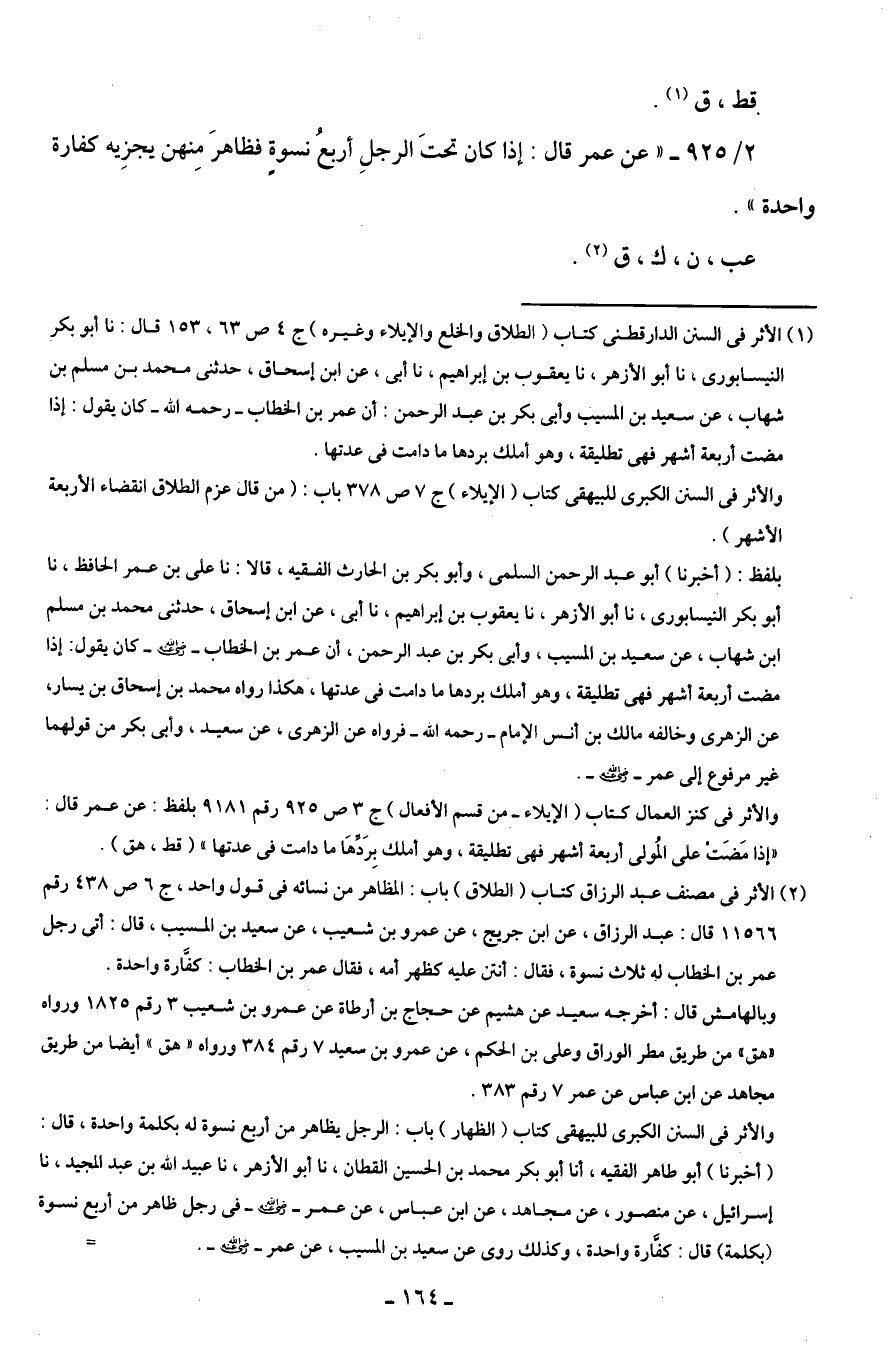 قط ، ق (١) .
٢/ ٩٢٥ ـ « عن عمر قال : إذا كان تحتَ الرجلِ أربعُ نسوةٍ فظاهرَ مِنهن يجزِيه كفارة
واحدة » .
عب ، ن ، ك ، ق (٢) .
(١) الأثر فى السنن الدارقطنى كتاب ( الطلاق والخلع والإيلاء وغيره ) ج ٤ ص ٦٣ ، ١٥٣ قال : نا أبو بكر
النيسابورى ، نا أبو الأزهر ، نا يعقوب بن إبراهيم ، نا أبى ، عن ابن إسحاق ، حدثنى محمد بن مسلم بن
شهاب ، عن سعيد بن المسيب وأبى بكر بن عبد الرحمن : أن عمر بن الخطاب ـ رحمه الله ـ كان يقول : إذا
مضت أربعة أشهر فهى تطليقة ، وهو أملك بردها ما دامت فى عدتها .
والأثر فى السنن الكبرى للبيهقى كتاب ( الإيلاء ) ج ٧ ص ٣٧٨ باب : ( من قال عزم الطلاق انقضاء الأربعة
الأشهر ) .
بلفظ : ( أخبرنا ) أبو عبد الرحمن السلمى ، وأبو بكر بن الحارث الفقيه ، قالا : نا على بن عمر الحافظ ، نا
أبو بكر النيسابورى ، نا أبو الأزهر ، نا يعقوب بن إبراهيم ، نا أبى ، عن ابن إسحاق ، حدثنى محمد بن مسلم
ابن شهاب ، عن سعيد بن المسيب ، وأبى بكر بن عبد الرحمن ، أن عمر بن الخطاب ـ رضي الله عنه ـ كان يقول: إذا
مضت أربعة أشهر فهى تطليقة ، وهو أملك بردها ما دامت فى عدتها ، هكذا رواه محمد بن إسحاق بن يسار،
عن الزهرى وخالفه مالك بن أنس الإمام ـ رحمه الله ـ فرواه عن الزهرى ، عن سعيد ، وأبى بكر من قولهما
غير مرفوع إلى عمر ـ رضي الله عنه ـ .
والأثر فى كنز العمال كتاب ( الإيلاء ـ من قسم الأفعال ) ج ٣ ص ٩٢٥ رقم ٩١٨١ بلفظ : عن عمر قال :
«إذا مَضَتْ على المُولى أربعة أشهر فهى تطليقة ، وهو أملك بِرَدِّهَا ما دامت فى عدتها » ( قط ، هق ) .
(٢) الأثر فى مصنف عبد الرزاق كتاب ( الطلاق ) باب : المظاهر من نسائه فى قول واحد ، ج ٦ ص ٤٣٨ رقم
١١٥٦٦ قال : عبد الرزاق ، عن ابن جريج ، عن عمرو بن شعيب ، عن سعيد بن المسيب ، قال : أتى رجل
عمر بن الخطاب له ثلاث نسوة ، فقال : أنتن عليه كظهر أمه ، فقال عمر بن الخطاب : كفَّارة واحدة .
وبالهامش قال : أخرجه سعيد عن هشيم عن حجاج بن أرطاة عن عمرو بن شعيب ٣ رقم ١٨٢٥ ورواه
«هق» من طريق مطر الوراق وعلى بن الحكم ، عن عمرو بن سعيد ٧ رقم ٣٨٤ ورواه « هق » أيضا من طريق
مجاهد عن ابن عباس عن عمر ٧ رقم ٣٨٣ .
والأثر فى السنن الكبرى للبيهقى كتاب ( الظهار ) باب : الرجل يظاهر من أربع نسوة له بكلمة واحدة ، قال :
( أخبرنا ) أبو طاهر الفقيه ، أنا أبو بكر محمد بن الحسين القطان ، نا أبو الأزهر ، نا عبيد الله بن عبد المجيد ، نا
إسرائيل ، عن منصور ، عن مجاهد ، عن ابن عباس ، عن عمر ـ رضي الله عنه ـ فى رجل ظاهر من أربع نسوة
(بكلمة) قال : كفَّارة واحدة ، وكذلك روى عن سعيد بن المسيب ، عن عمر ـ رضي الله عنه ـ . =
ـ ١٦٤ ـ